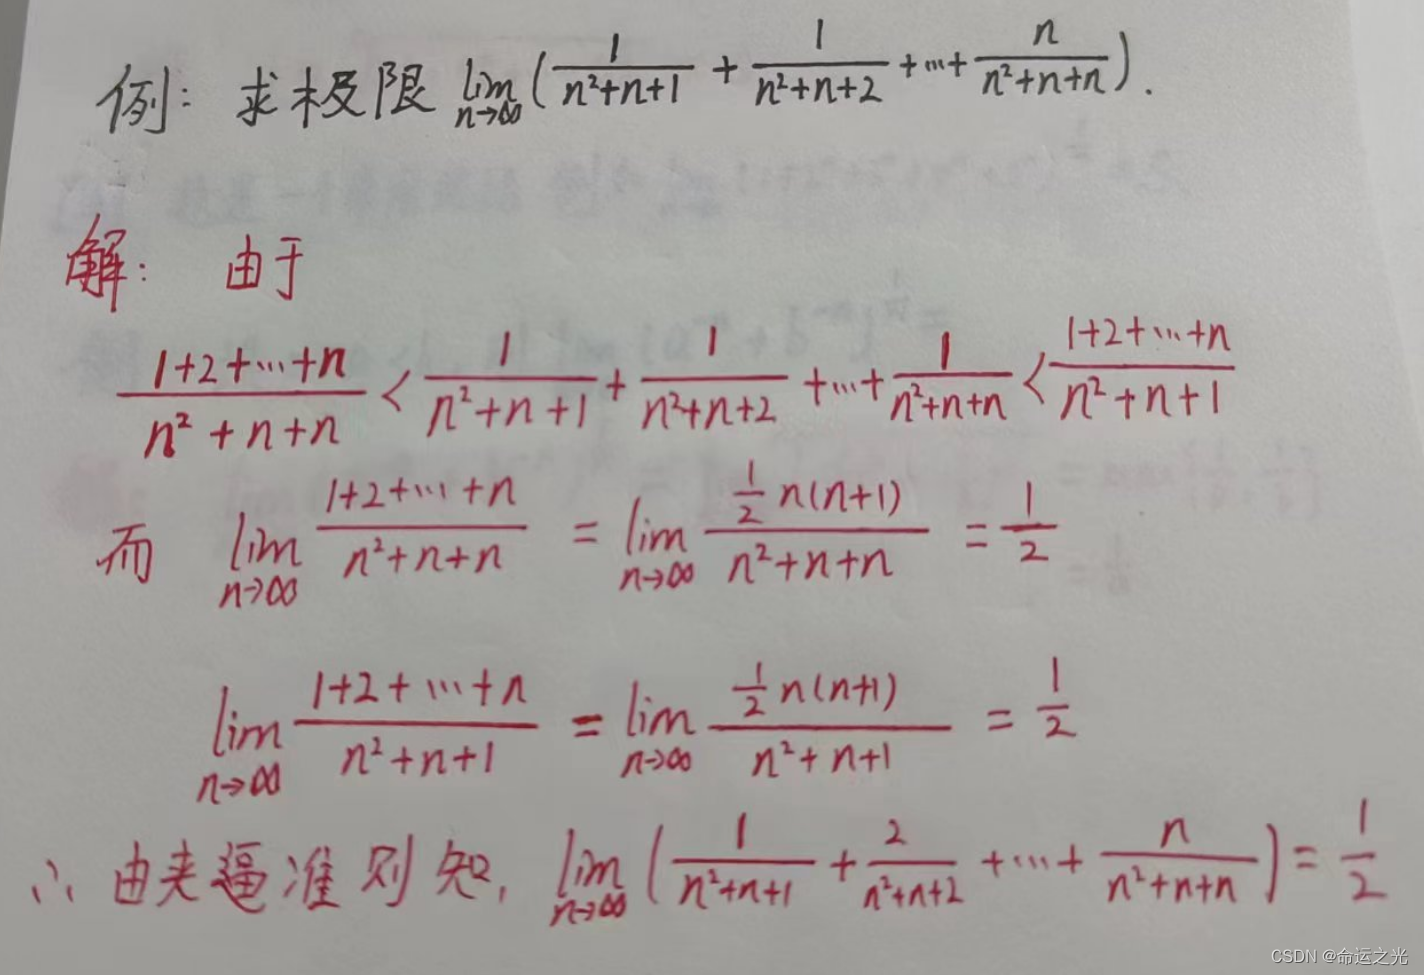 例: 求极限 lim n→∞ (1/(n²+n+1) + 1/(n²+n+2) + ··· + n/(n²+n+n)).
解: 由于
(1+2+···+n)/(n²+n+n) < 1/(n²+n+1) + 1/(n²+n+2) + ··· + 1/(n²+n+n) < (1+2+···+n)/(n²+n+1)
而 lim n→∞ (1+2+···+n)/(n²+n+n) = lim n→∞ (½n(n+1))/(n²+n+n) = 1/2
lim n→∞ (1+2+···+n)/(n²+n+1) = lim n→∞ (½n(n+1))/(n²+n+1) = 1/2
∴ 由夹逼准则知, lim n→∞ (1/(n²+n+1) + 2/(n²+n+2) + ··· + n/(n²+n+n)) = 1/2
CSDN @命运之光